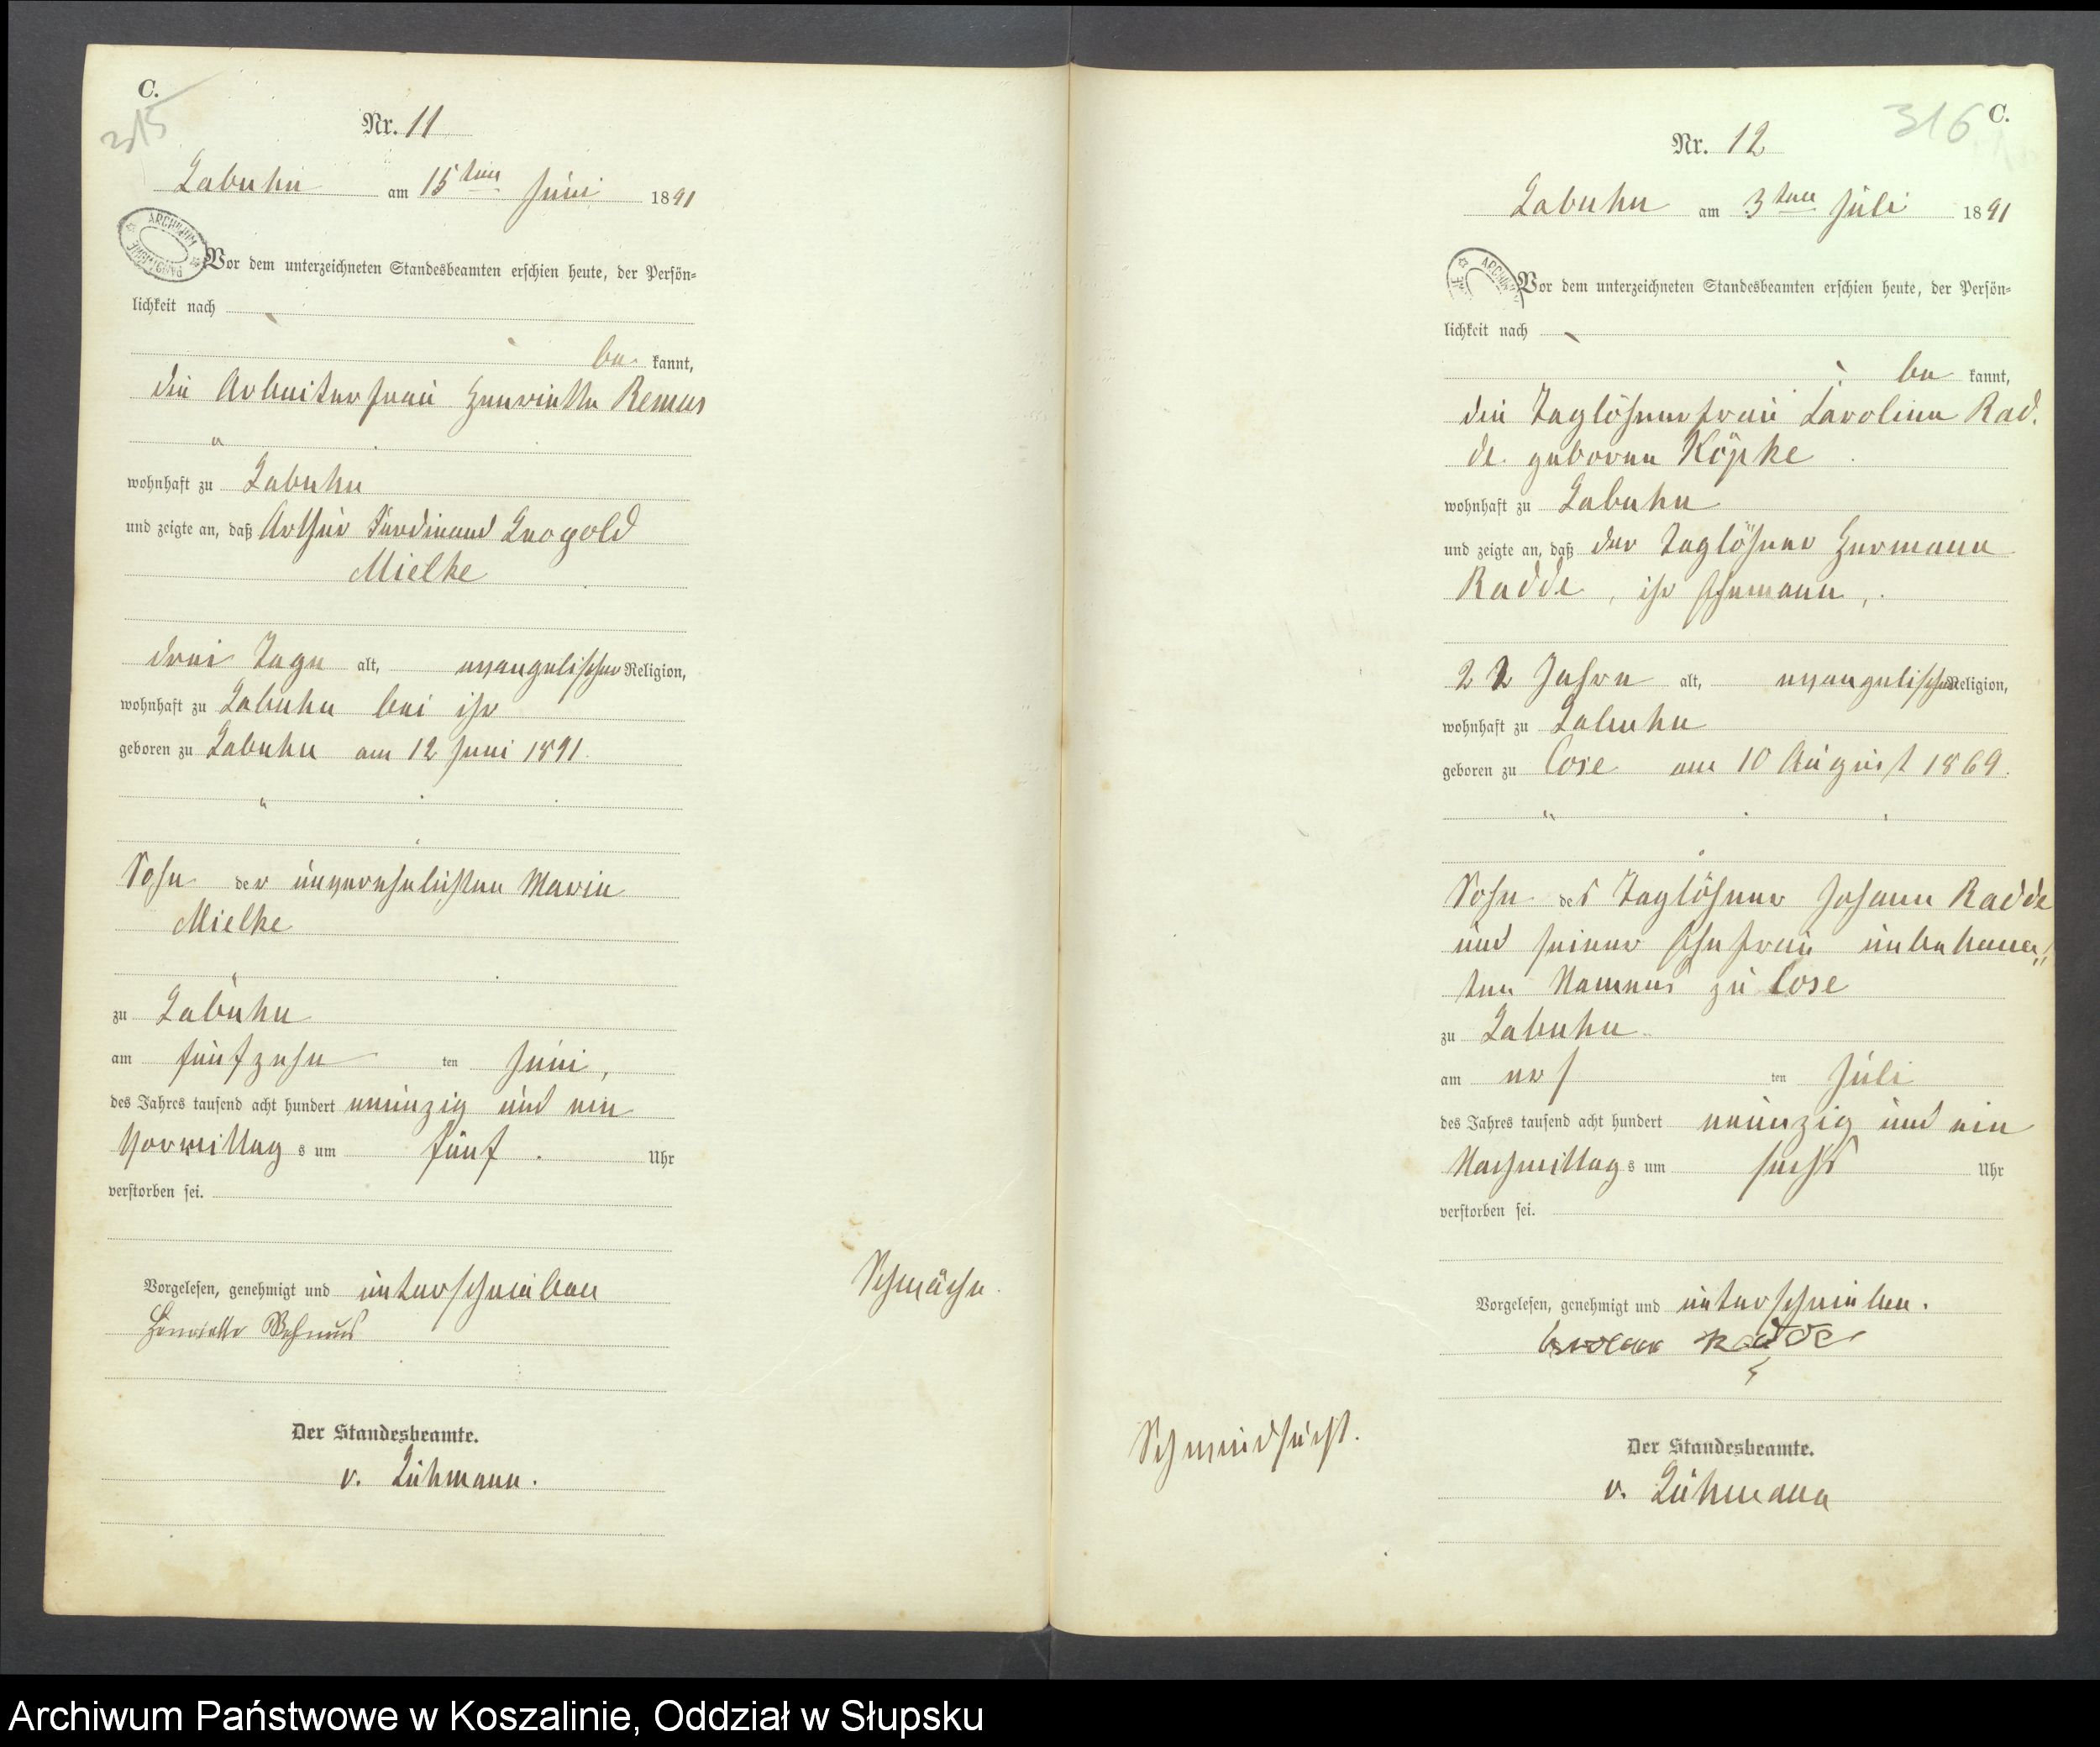 C.
315
Nr. 11
Labuhn am 15ten Juni 1891
ARCHIWUM
Vor dem unterzeichneten Standesbeamten erschien heute, der Persön-
lichkeit nach
be kannt,
die Arbeiterfrau Henriette Remus
wohnhaft zu Labuhn
und zeigte an, daß Arthur Ferdinand Leopold
Mielke
drei Tage alt, evangelischer Religion,
wohnhaft zu Labuhn bei ihr
geboren zu Labuhn am 12 Juni 1891.
Sohn der unverehelichten Marie
Mielke
zu Labuhn
am fünfzehn ten Juni,
des Jahres tausend acht hundert neunzig und ein
Vormittag s um fünf Uhr
verstorben sei.
Vorgelesen, genehmigt und unterschrieben
Henriette
Der Standesbeamte.
v. Lühmann.
Schwäche.
C.
316
Nr. 12
Labuhn am 3ten Juli 1891
Vor dem unterzeichneten Standesbeamten erschien heute, der Persön-
lichkeit nach
be kannt,
die Taglöhnerfrau Caroline Rad.
de. geborne Köpke
wohnhaft zu Labuhn
und zeigte an, daß der Taglöhner Hermann
Radde, ihr Ehemann,
22 Jahre alt, evangelischer Religion,
wohnhaft zu Labuhn
geboren zu Cose am 10 August 1869.
Sohn des Taglöhner Johann Radde
und seiner Ehefrau unbekann„
ten Namens zu Cose
zu Labuhn
am ers ten Juli
des Jahres tausend acht hundert neunzig und ein
Nachmittag s um sechs Uhr
verstorben sei.
Vorgelesen, genehmigt und unterschrieben.
Radde
Schwindsucht.
Der Standesbeamte.
v. Lühmann
Archiwum Państwowe w Koszalinie, Oddział w Słupsku